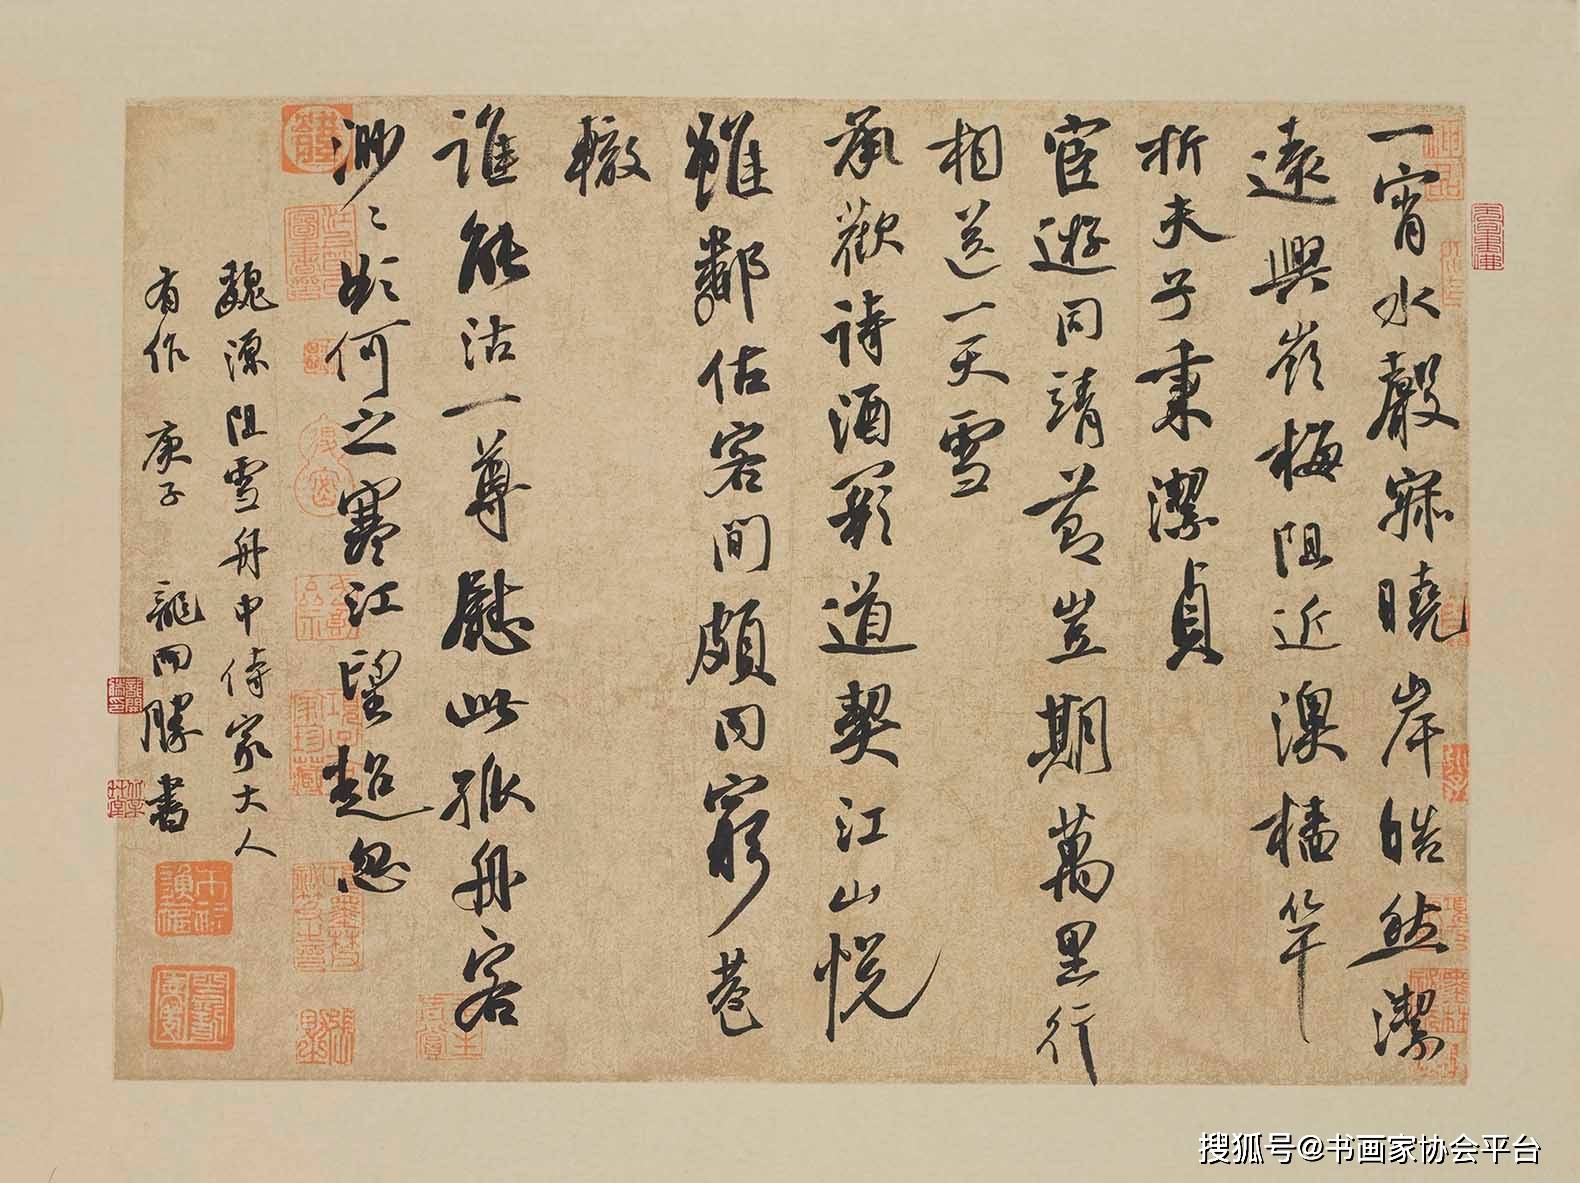 一宵水聲寐曉岸皓然潔
遠興嶺梅阻近澳橘竿
折夫子秉潔貞
宦遊同靖節豈期萬里行
相送一天雪
承歡詩酒影道契江山悅
雖鄰估客間頗同窮巷
轍
誰能沽一尊慰此孤舟客
渺渺欲何之寒江望超忽
魏源阻雪舟中侍家大人
有作 庚子 龍開勝書
搜狐号@书画家协会平台